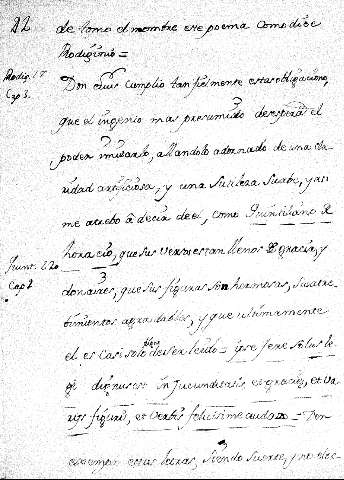 22
de tomo el nombre este poema como dice
Rodiginio =
Rodig. l. 7
Cap 3.
Don Luis cumplio tan fielmente estas obligaciones,
que el ingenio mas presumido desespera el
poder imitarlo, allandolo adornado de una cla-
ridad artificiosa, y una sutileza suabe, y asi
me atrebo à decir de el, como Quintiliano de
horacio, que sus versos estan llenos de gracia, y
Cap 2
donaires, que sus figuras son hermosas, su atre-
bimientos agradables, y que ultimamente
el es casi solo digno de ser leido = ipse fere solus le-
gi dignus est in jucunditatis et gracie, et va-
rijs figuris, et verbis felicisime audax =
estas letras, siendo suerte, y no elec-